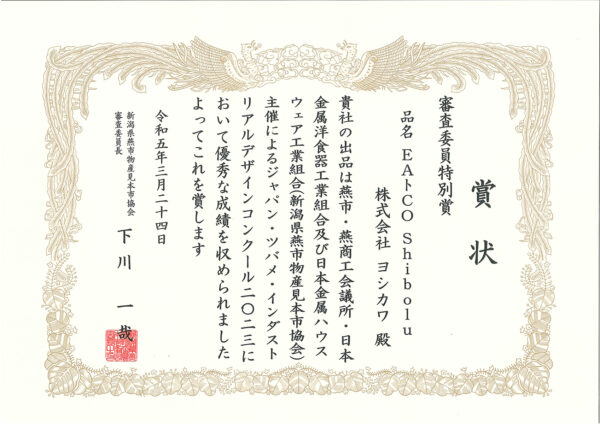 賞状
審査委員特別賞
品名 EAトCO Shibolu
株式会社 ヨシカワ 殿
貴社の出品は燕市・燕商工会議所・日本
金属洋食器工業組合及び日本金属ハウス
ウェア工業組合(新潟県燕市物産見本市協会)
主催によるジャパン・ツバメ・インダスト
リアルデザインコンクール二〇二三に
おいて優秀な成績を収められました
よってこれを賞します
令和五年三月二十四日
新潟県燕市物産見本市協会
審査委員長
下川 一哉